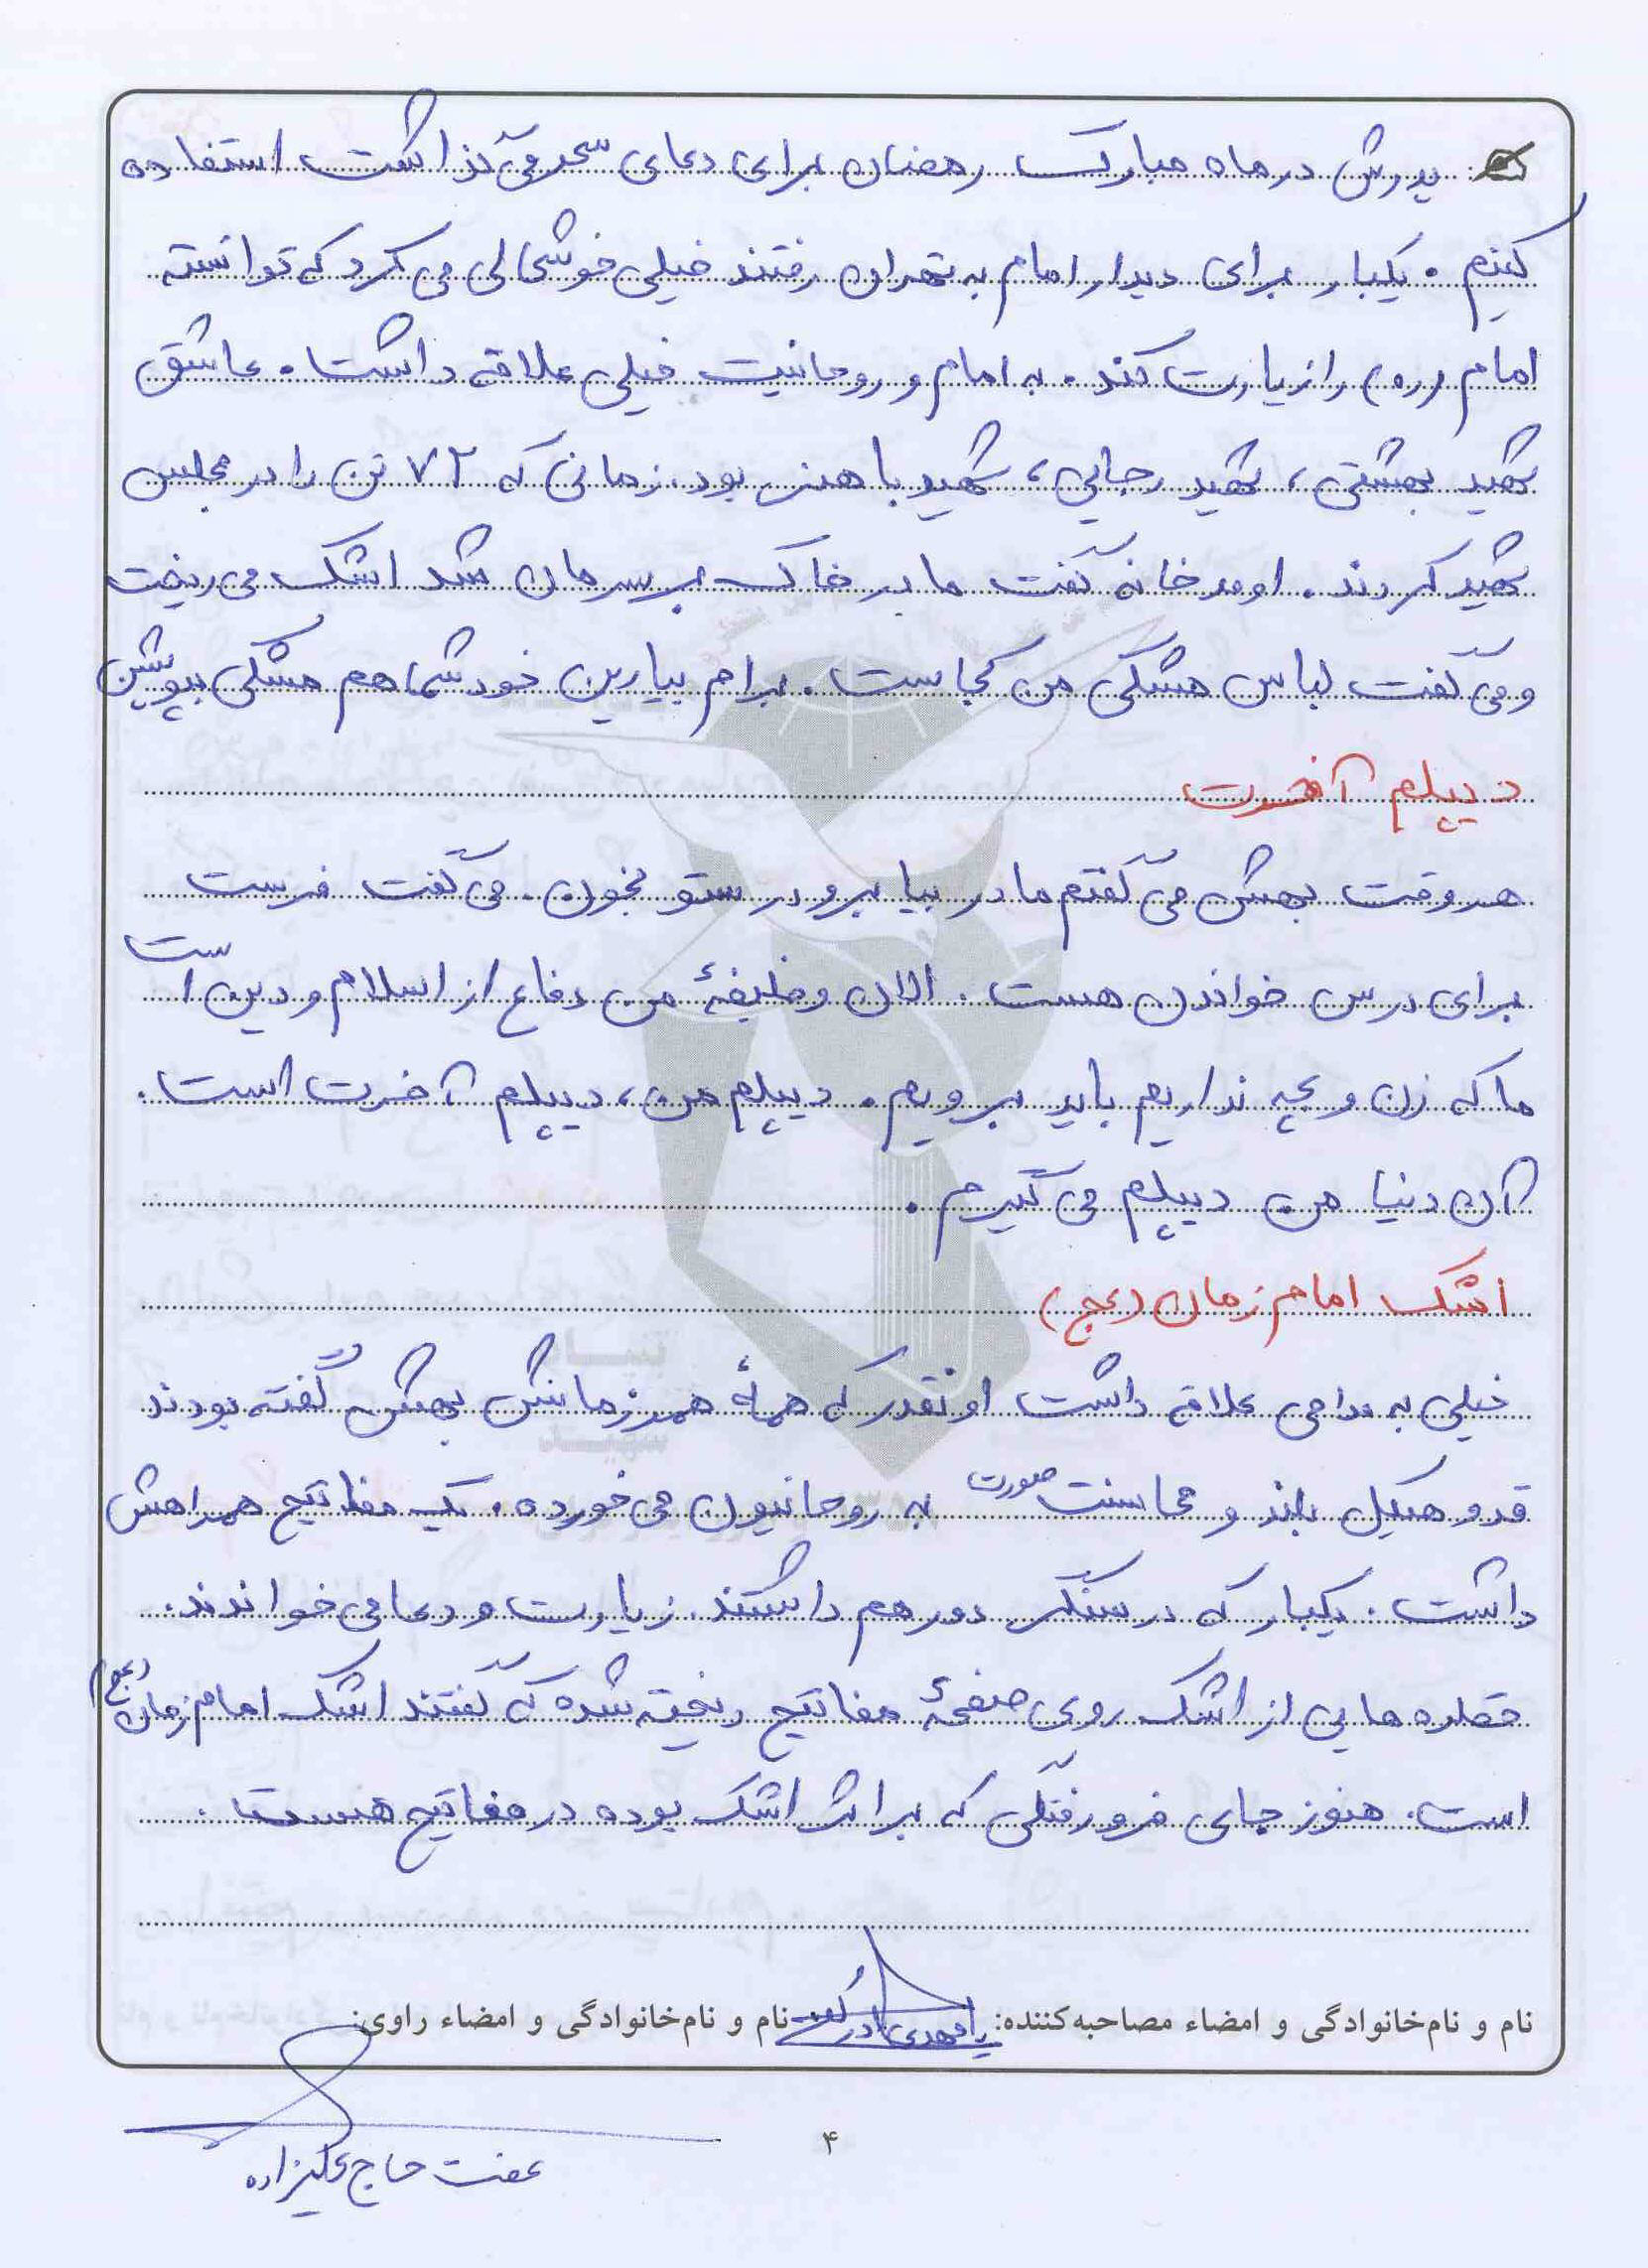 پدرش در ماه مبارک رمضان برای دعای سحر می گذاشت استفاده
کنیم. یکبار برای دیدار امام به تهران رفتند خیلی خوشحالی می کرد که توانسته
امام (ره) را زیارت کند. به امام و روحانیت خیلی علاقه داشت. عاشق
شهید بهشتی، شهید رجایی، شهید باهنر بود. زمانی که ۷۲ تن را در مجلس
شهید کردند. اومد خانه گفت مادر خاک بر سرمان شد اشک می ریخت
و می گفت لباس مشکی من کجاست. برام بیارین خود شما هم مشکی بپوشین
دیپلم آخرت
هر وقت بهش می گفتم مادر بیا برو درستو بخون. می گفت فرست
برای درس خواندن هست. الان وظیفهٔ من دفاع از اسلام و دین است
ما که زن و بچه نداریم باید برویم. دیپلم من، دیپلم آخرت است.
آن دنیا من دیپلم می گیرم.
اشک امام زمان (عج)
خیلی به مداحی علاقه داشت اونقدر که همهٔ همرزمانش بهش گفته بودند
قد و هیکل بلند و محاسنت صورت به روحانیون می خورده. یک مفاتیح همراهش
داشت. یکبار که در سنگر دور هم داشتند زیارت و دعا می خواندند.
قطره هایی از اشک روی صفحهٔ مفاتیح ریخته شده که گفتند اشک امام زمان (عج)
است. هنوز جای فرورفتگی که بر اثر اشک بوده در مفاتیح هست.
نام و نام‌خانوادگی و امضاء مصاحبه‌کننده: نام و نام‌خانوادگی و امضاء راوی:
عفت حاج علیزاده
۴